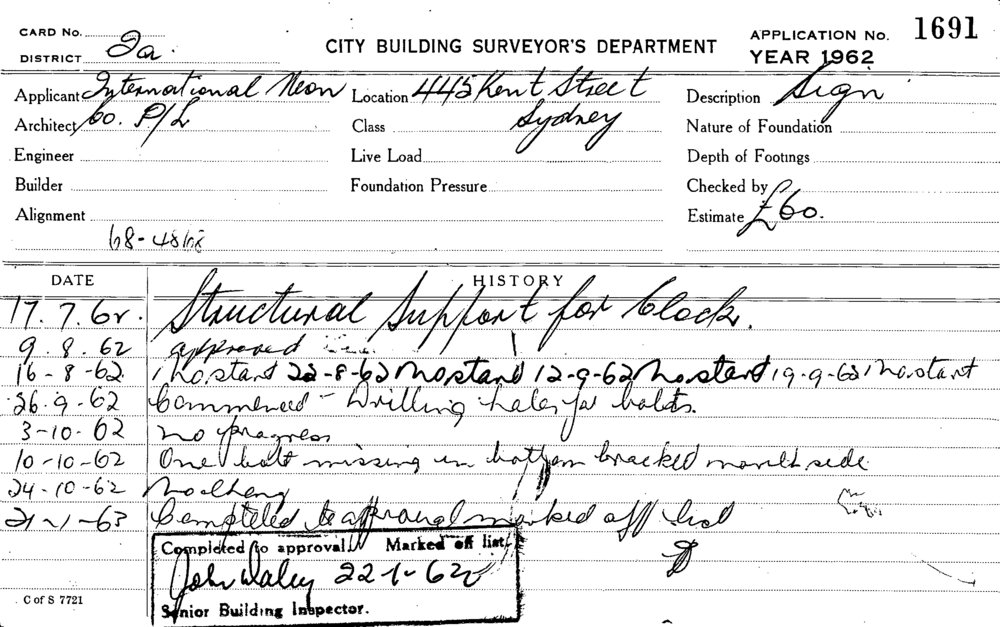 CARD No.
DISTRICT 2a.
CITY BUILDING SURVEYOR'S DEPARTMENT
APPLICATION No. 1691
YEAR 1962
Applicant International Neon
Location 445 Kent Street
Description Sign
Architect Co. P/L
Class Sydney
Nature of Foundation
Engineer
Live Load
Depth of Footings
Builder
Foundation Pressure
Checked by
Alignment
Estimate £60.
68-4868
DATE HISTORY
17.7.62. Structural Support for Clock.
9.8.62 approved
16-8-62 No start 22-8-62 No start 12-9-62 No start 19-9-62 No start
26.9-62 Commenced - Drilling holes for bolts.
3-10-62 no progress
10-10-62 One bolt missing in bottom bracked north side
24-10-62 No change
21-1-63 Completed to approval marked off list
Completed to approval. Marked off list.
John Waley 22-1-62
Senior Building Inspector.
C of S 7721